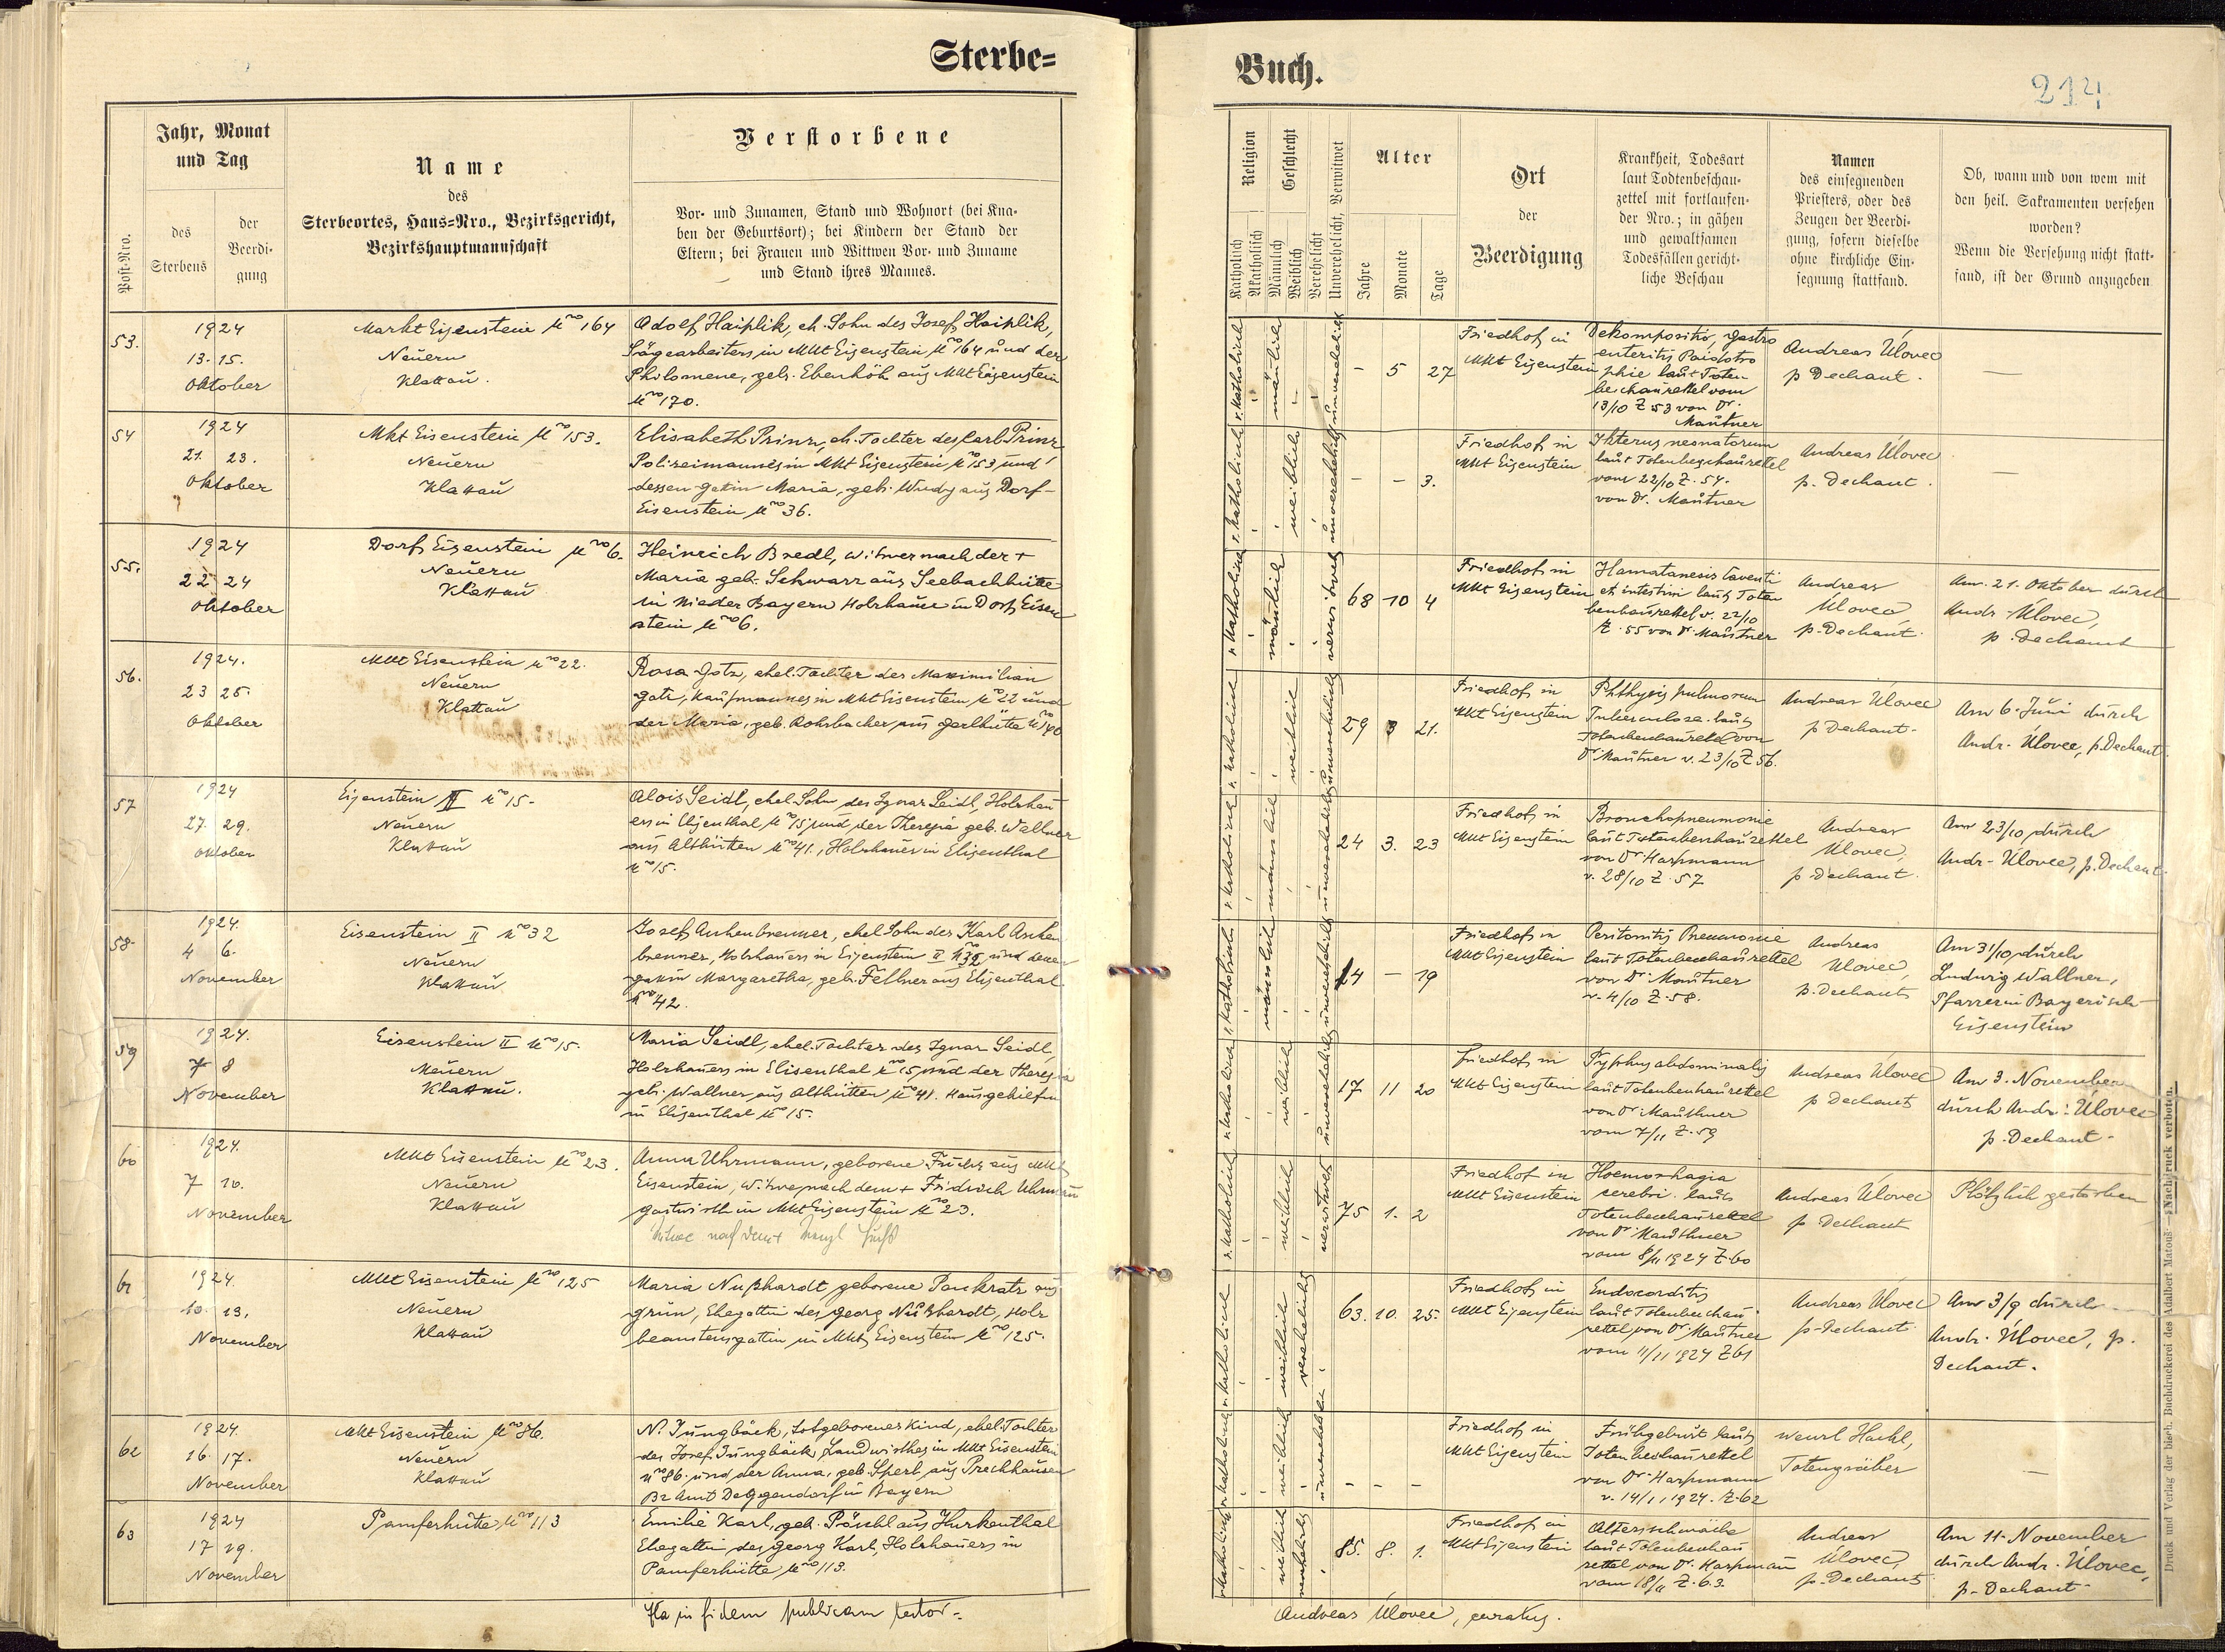 Sterbe=
Buch.
214
Post-Nro.
Jahr, Monat
und Tag
des
Sterbens
der
Beerdi-
gung
Name
des
Sterbeortes, Haus-Nro., Bezirksgericht,
Bezirkshauptmannschaft
Verstorbene
Vor- und Zunamen, Stand und Wohnort (bei Kna-
ben der Geburtsort); bei Kindern der Stand der
Eltern; bei Frauen und Wittwen Vor- und Zuname
und Stand ihres Mannes.
Religion
Katholisch
Akatholisch
Geschlecht
Männlich
Weiblich
Verehelicht
Unverehelicht, Verwitwet
Alter
Jahre
Monate
Tage
Ort
der
Beerdigung
Krankheit, Todesart
laut Todtenbeschau-
zettel mit fortlaufen-
der Nro.; in gähen
und gewaltsamen
Todesfällen gericht-
liche Beschau
Namen
des einsegnenden
Priesters, oder des
Zeugen der Beerdi-
gung, sofern dieselbe
ohne kirchliche Ein-
segnung stattfand.
Ob, wann und von wem mit
den heil. Sakramenten versehen
worden?
Wenn die Versehung nicht statt-
fand, ist der Grund anzugeben
53.
1924
13. 15.
Oktober
Markt Eisenstein No 164
Neuern
Klattau.
Adolf Haiplik, eh. Sohn des Josef Haiplik,
Sägearbeiters in Mkt Eisenstein No 164 und der
Philomene, geb. Ebenhöh aus Mkt Eisenstein
No 170.
r. katholisch
männlich
unverehelicht
- 5 27
Friedhof in
Mkt Eisenstein
Dekompositio, gastro
enteritis Paidatro
phie laut Toten
beschauzettel vom
13/10 Z 53 von Dr.
Mautner
Andreas Úlovec
p Dechant.
—
54
1924
21. 23.
Oktober
Mkt Eisenstein No 153.
Neuern
Klattau
Elisabeth Prinz, eh. Tochter des Karl Prinz
Polizeimannes in Mkt Eisenstein No 153 und
dessen Gatin Maria, geb. Wudy aus Dorf-
Eisenstein No 36.
r. katholisch
weiblich
unverehelicht
- - 3.
Friedhof in
Mkt Eisenstein
Ikterus neonatorum
laut Totenbeschauzettel
vom 22/10 Z. 54.
von Dr. Mautner
Andreas Úlovec
p. Dechant.
—
55.
1924
22 24
Oktober
Dorf Eisenstein No 6.
Neuern
Klattau
Heinrich Bredl, witwer nach der +
Maria geb. Schwarz aus Seebachhütte
in Nieder Bayern Holzhauer in Dorf Eisen
stein No 6.
r. katholisch
männlich
verwitwet
68 10 4
Friedhof in
Mkt Eisenstein
et intestini laut Toten
beschauzettel v. 22/10
Z. 55 von Dr. Mautner
Andreas
Úlovec
p. Dechant.
Am 21. Oktober durch
Andr. Úlovec,
p. Dechant
56.
1924.
23 25.
Oktober
Mkt Eisenstein No 22.
Neuern
Klattau
Rosa Götz, ehel. Tochter des Maximilian
Götz, Kaufmannes in Mkt Eisenstein No 22 und
der Maria, geb. Rohrbacher aus Gerlhütte No 140
r. katholisch
weiblich
unverehelicht
29 3 21.
Friedhof in
Mkt Eisenstein
Phthysis pulmorum
Tuberculose laut
Totenbeschauzettel von
Dr Mautner v. 23/10 Z 56.
Andreas Úlovec
p Dechant.
Am 6. Juni durch
Andr. Úlovec, p. Dechant.
57
1924
27. 29.
Oktober
Eisenstein II No 15.
Neuern
Klattau
Alois Seidl, ehel Sohn des Ignaz Seidl, Holzhau
ers in Elisenthal No 15 und der Theresia geb. Wallner
aus Althütten No 41., Holzhauer in Elisenthal
No 15.
r. katholisch
männlich
unverehelicht
24 3. 23
Friedhof in
Mkt Eisenstein
Bronchopneumonie
laut Totenbeschauzettel
von Dr Harpmann
v. 28/10 Z. 57
Andreas
Úlovec,
p Dechant.
Am 23/10 durch
Andr. Úlovec, p. Dechant.
58.
1924.
4 6.
November
Eisenstein II No 32
Neuern
Klattau
Josef Aschenbrenner, ehel Sohn des Karl Aschen
brenner, Holzhauers in Eisenstein II No 32 und dessen
Gattin Margaretha, geb. Fellner aus Elisenthal
No 42.
r. katholisch
männlich
unverehelicht
14 - 19
Friedhof in
Mkt Eisenstein
Peritonitis Pneumonie
laut Totenbeschauzettel
von Dr. Mautner
v. 4/10 Z. 58.
Andreas
Ulovec,
p. Dechant
Am 31/10 durch
Ludwig Wallner,
Pfarrer in Bayerisch
Eisenstein
59
1924.
7 8
November
Eisenstein II No 15.
Neuern
Klattau.
Maria Seidl, ehel. Tochter des Ignaz Seidl,
Holzhauers in Elisenthal No 15 und der Theresia
geb. Wallner aus Althütten No 41. Hausgehilfin
in Elisenthal No 15.
r. katholisch
weiblich
unverehelicht
17 11 20
Friedhof in
Mkt Eisenstein
Typhus abdominalis
laut Totenbeschauzettel
von Dr Mauthner
vom 7/11 Z. 59
Andreas Úlovec
p Dechant
Am 3. November
durch Andr. Úlovec
p. Dechant.
60
1924.
7 10.
November
Mkt Eisenstein No 23.
Neuern
Klattau
Anna Uhrmann, geborene Fuchs aus Mkt
Eisenstein, Witwe nach dem + Fridrich Uhrmann
gastwirth in Mkt Eisenstein No 23.
Witwe nach dem + Fuchs
r. katholisch
weiblich
verwitwet
75 1. 2
Friedhof in
Mkt Eisenstein
Hoemorhagia
cerebri. laut
Totenbeschauzettel
von Dr Mauthner
vom 8/11 1924 Z. 60
Andreas Úlovec
p Dechant
Plötzlich gestorben
61
1924.
10. 13.
November
Mkt Eisenstein No 125
Neuern
Klattau
Maria Nußhardt, geborene Pankratz aus
Grün, Ehegattin des Georg Nußhardt, Holz
beamtensgattin in Mkt Eisenstein No 125.
r. katholisch
weiblich
verehelicht
63. 10. 25.
Friedhof in
Mkt Eisenstein
Endocorditis
laut Totenbeschau
zettel von Dr Mautner
vom 11/11 1924 Z 61
Andreas Ulovec
p. Dechant
Am 3/9 durch
Andr. Úlovec, p.
Dechant.
62
1924.
16. 17.
November
Mkt Eisenstein No 86.
Neuern
Klattau
N. Jungbäck, totgeborenes Kind, ehel. Tochter
des Josef Jungbäck, Landwirthes in Mkt Eisenstein
No 86. und der Anna, geb. Sperl, aus Prechhausen
Bz Amt Deggendorf in Bayern
r. katholisch
weiblich
unverehelicht
- - -
Friedhof in
Mkt Eisenstein
Frühgeburt laut
Totenbeschauzettel
von Dr. Harpmann
v. 14/11 1924. Z. 62
Wenzl Hackl,
Totengräber
—
63
1924
17 19.
November
Pamferhütte No 113
Emilie Karl, geb. Pöschl aus Hurkenthal
Ehegattin des Georg Karl, Holzhauers in
Pamferhütte No 113.
r. katholisch
weiblich
verehelicht
85. 8. 1.
Friedhof in
Mkt Eisenstein
Altersschwäche
laut Totenbeschau
zettel von Dr. Harpmann
vom 18/11 Z. 63.
Andreas
Úlovec,
p. Dechant
Am 11. November
durch Andr. Úlovec,
p. Dechant.
Ita in fidem publicam testor.
Andreas Úlovec, curatus.
Druck und Verlag der bisch. Buchdruckerei des Adalbert Matouš — Nachdruck verboten.